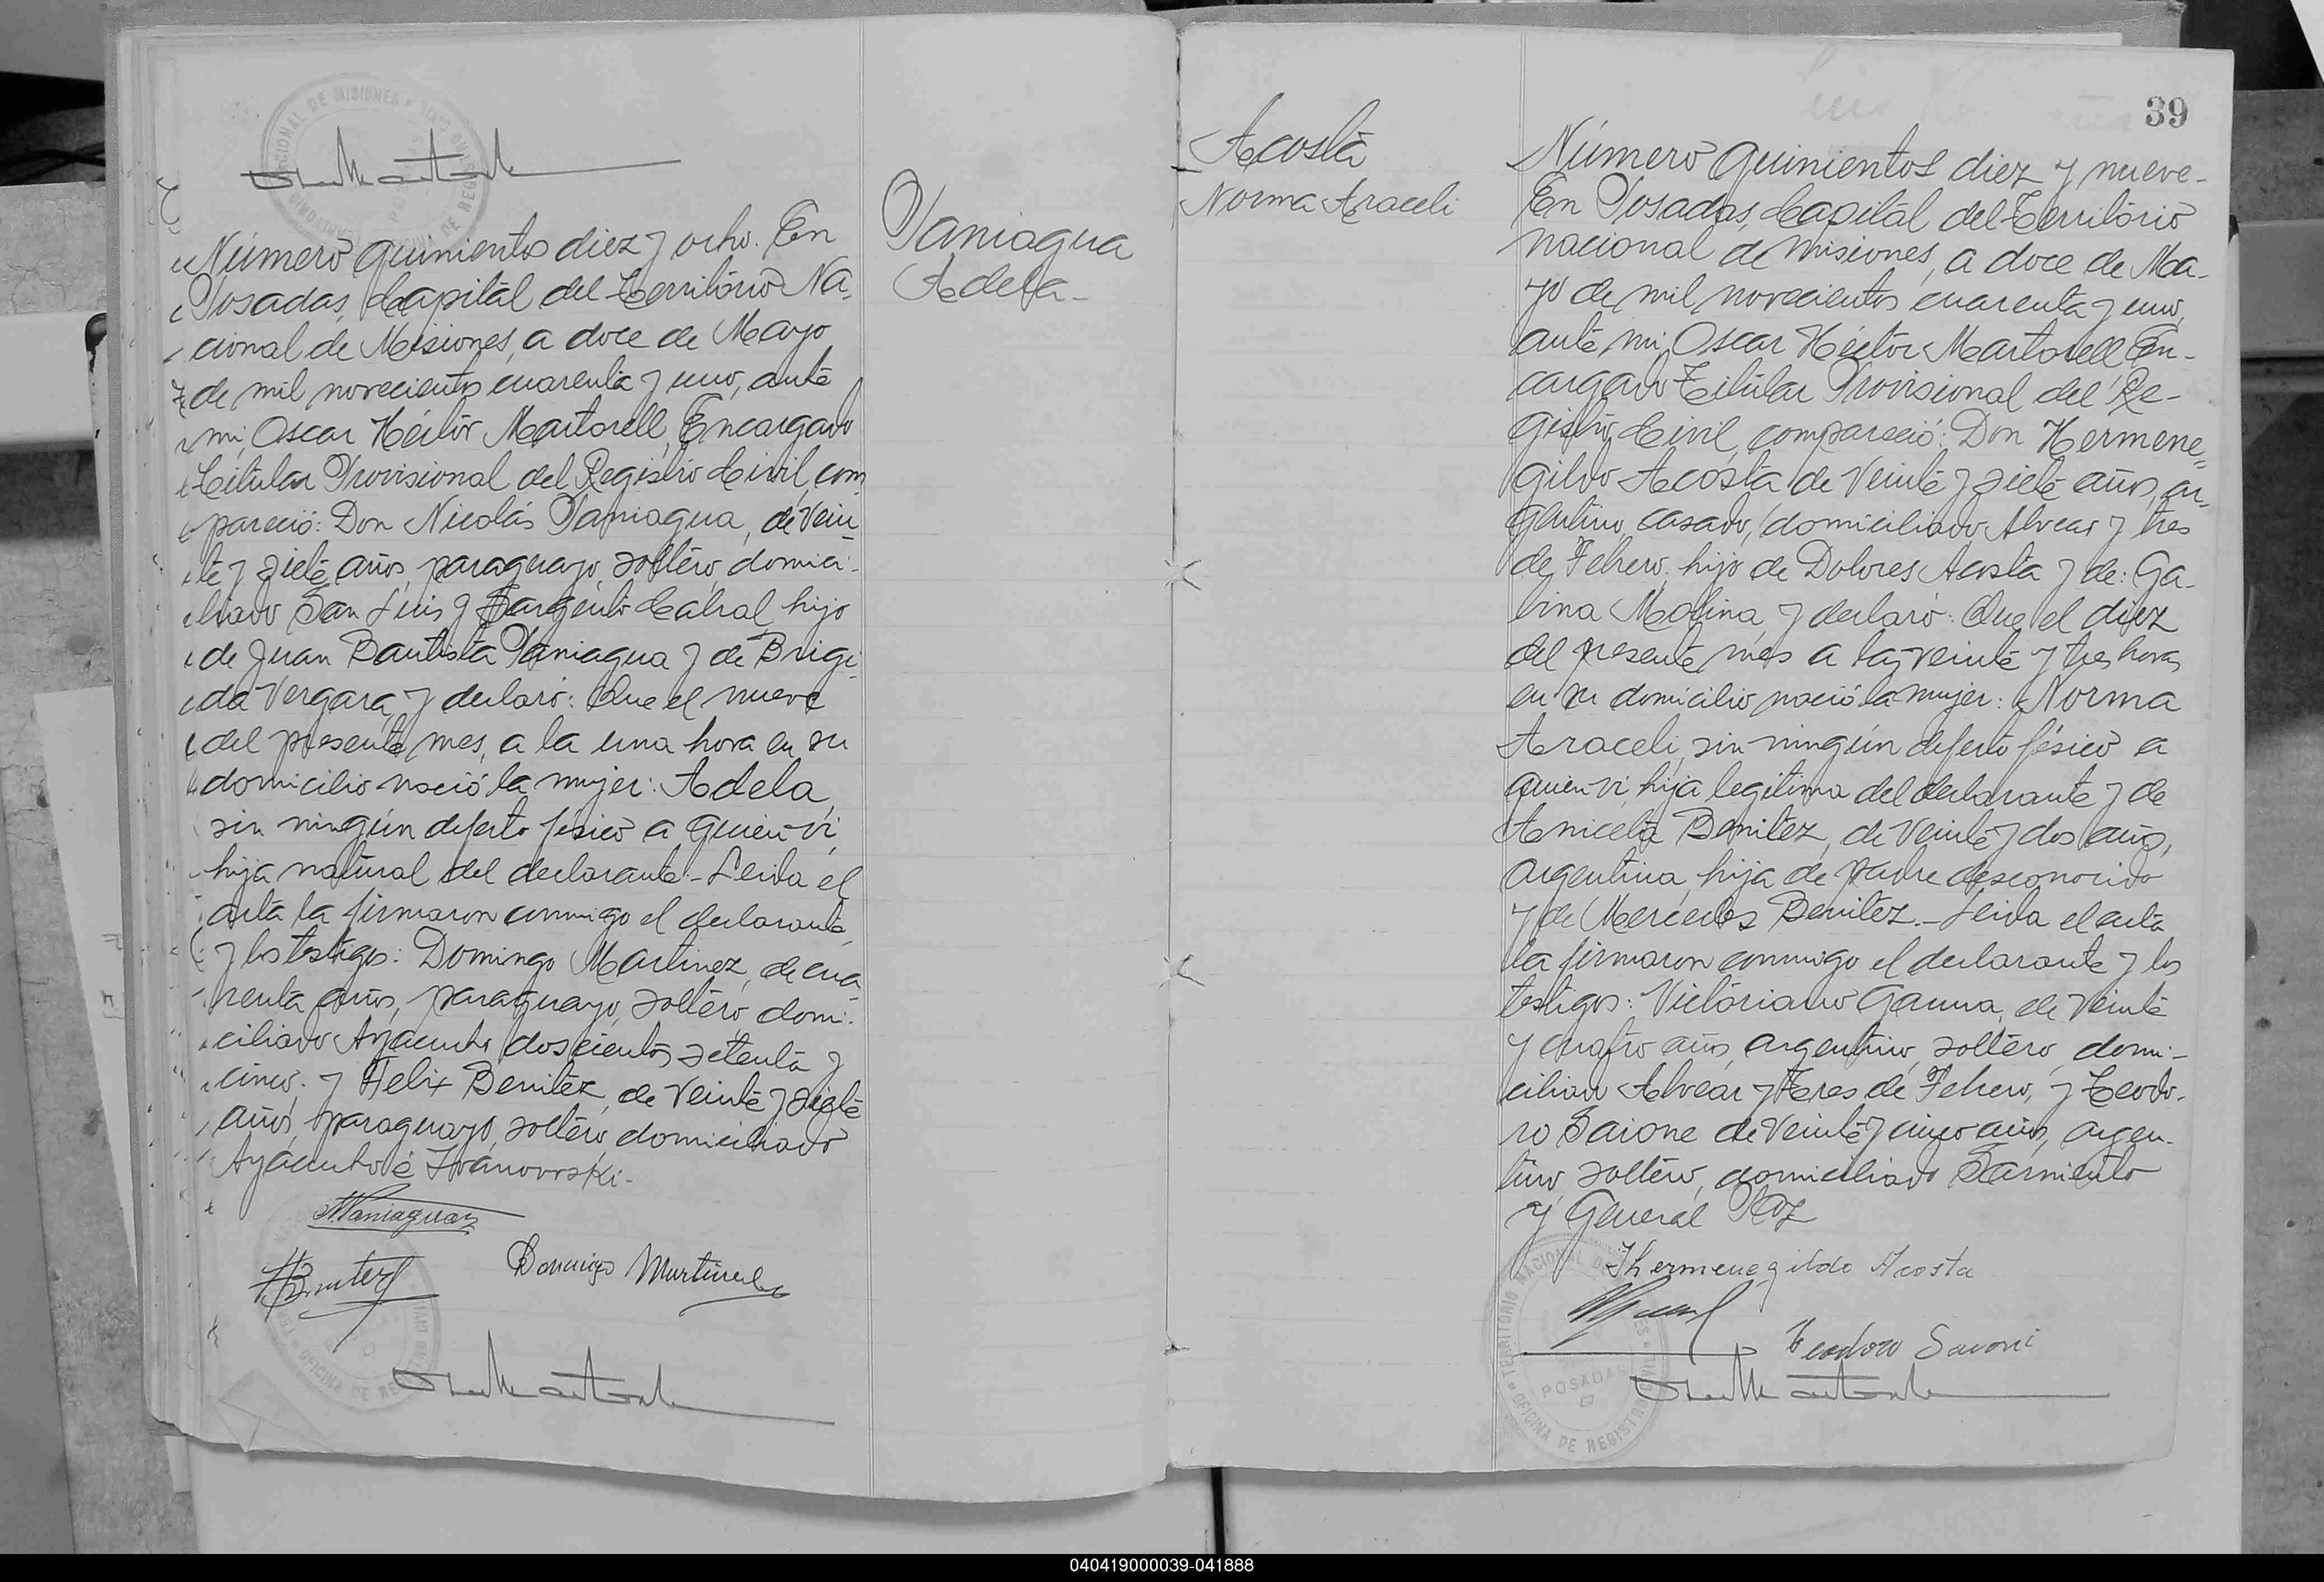 TERRITORIO NACIONAL DE MISIONES • OFICINA DE REGISTRO CIVIL
Número quinientos diez y ocho. En
Posadas, Capital del Territorio Na-
cional de Misiones, a doce de Mayo
de mil novecientos cuarenta y uno, ante
mi, Oscar Héctor Martorell, Encargado
Titular Provisional del Registro Civil, com
pareció: Don Nicolás Paniagua, de vein-
te y siete años, paraguayo, soltero, domici-
liado San Luis y Sargento Cabral, hijo
de Juan Bautista Paniagua y de Brigi-
da Vergara, y declaró: Que el nueve
del presente mes, a la una hora en su
domicilio nació la mujer: Adela,
sin ningún defecto físico a quien vi,
hija natural del declarante.- Leida el
acta la firmaron conmigo el declarante,
y los testigos: Domingo Martinez, de cua-
renta años, paraguayo, soltero, domi-
ciliado Ayacucho doscientos setenta y
cinco. y Felix Benitez, de veinte y siete
años, paraguayo, soltero, domiciliado
Ayacucho é Ivanowski.-
NPaniagua
FBenitez
Domingo Martinez
Paniagua
Adela-
Acosta
Norma Araceli
39
Número quinientos diez y nueve-
En Posadas, Capital del Territorio
nacional de Misiones, a doce de Ma-
yo de mil novecientos cuarenta y uno,
ante mi, Oscar Héctor Martorell En-
cargado Titular Provisional del Re-
gistro Civil, compareció: Don Hermene-
gildo Acosta de veinte y siete años, ar-
gentino, casado, domiciliado Alvear y tres
de Febrero, hijo de Dolores Acosta y de: Ga-
bina Molina, y declaró: Que el diez
del presente mes a las veinte y tres horas
en su domicilio nació la mujer: Norma
Araceli, sin ningún defecto físico a
quien vi, hija legitima del declarante y de
Aniceta Benitez, de veinte y dos años,
argentina, hija de padre desconocido
y de Mercedes Benitez.- Leida el acta
la firmaron conmigo el declarante y los
testigos: Victoriano Gauna, de veinte
y cuatro años, argentino, soltero, domi-
ciliado Alvear y Tres de Febrero, y Teodo-
ro Saione de veinte y cinco años, argen-
tino, soltero, domiciliado Sarmiento
y General Paz
Hermenegildo Acosta
Teodoro Savoni
TERRITORIO NACIONAL DE MISIONES • OFICINA DE REGISTRO CIVIL
POSADAS
040419000039-041888